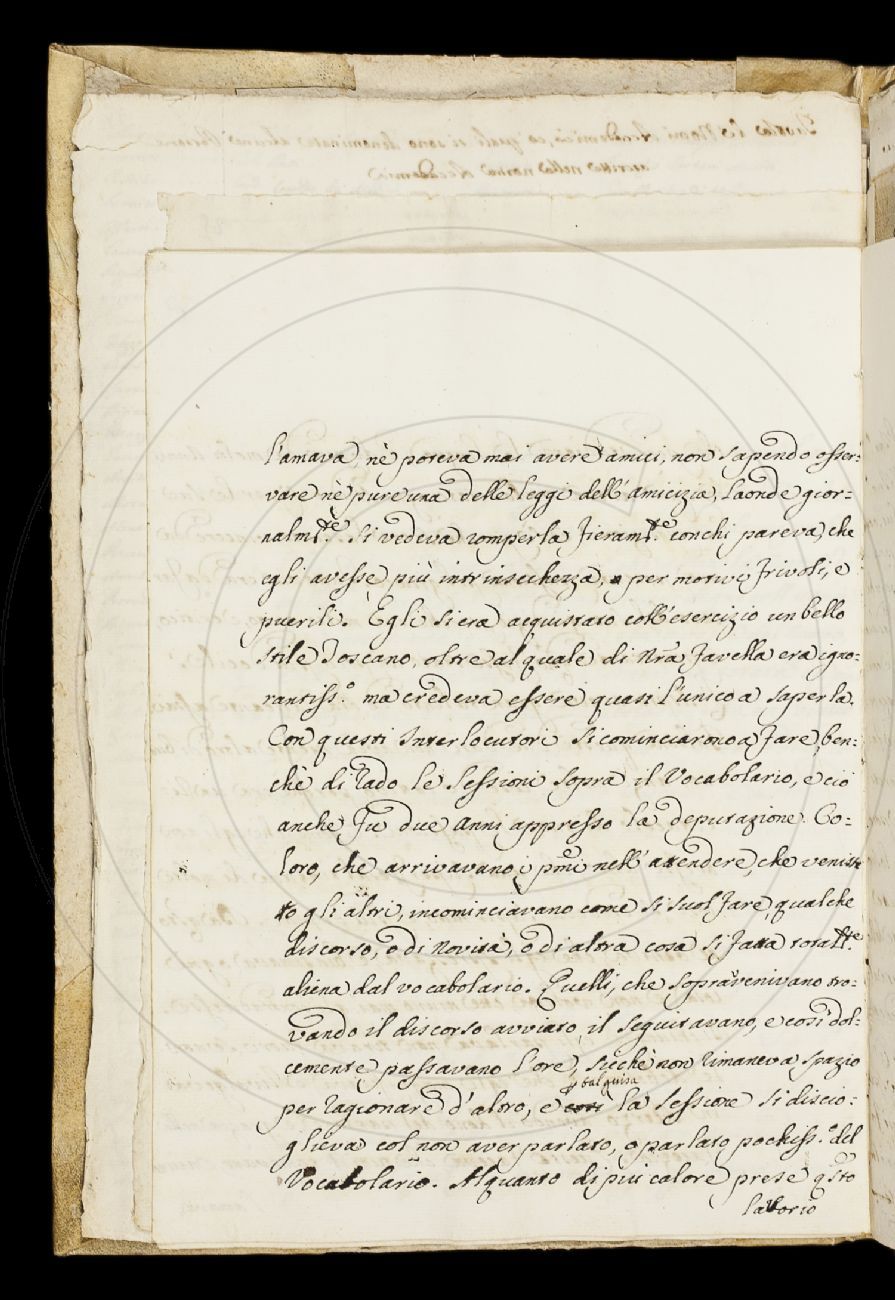 l'amava, nè poteva mai avere amici, non sapendo osser=
vare nè pure una delle leggi dell'amicizia, laonde gior=
nalmte. si vedeva romperla fieramte. con chi pareva, che
egli avesse più intrinsechezza, per motivi frivoli, e
puerili. Egli si era acquistato coll'esercizio un bello
stile Toscano, oltre al quale di Nrã favella era igno=
rantiss.o ma credeva essere quasi l'unico a saperla.
Con questi Interlocutori si cominciarono a fare, ben=
chè di rado le Sessioni sopra il Vocabolario, e ciò
anche fu due Anni appresso la deputazione. Co=
loro, che arrivavano i pmi nell'attendere, che veniss
to gli altri, incominciavano come si suol fare, qualche
discorso, o di novità, o di altra cosa si fatta totalte.
aliena dal vocabolario. Quelli, che sopravenivano tro=
vando il discorso avviato, il seguitavano, e così dol=
cemente passavano l'ore, sicchè non rimaneva spazio
p tal guisa
per ragionare d'altro, e così la sessione si discio=
glieva col non aver parlato, o parlato pochiss.o del
Vocabolario. Alquanto di più calore prese qsto
lavorio